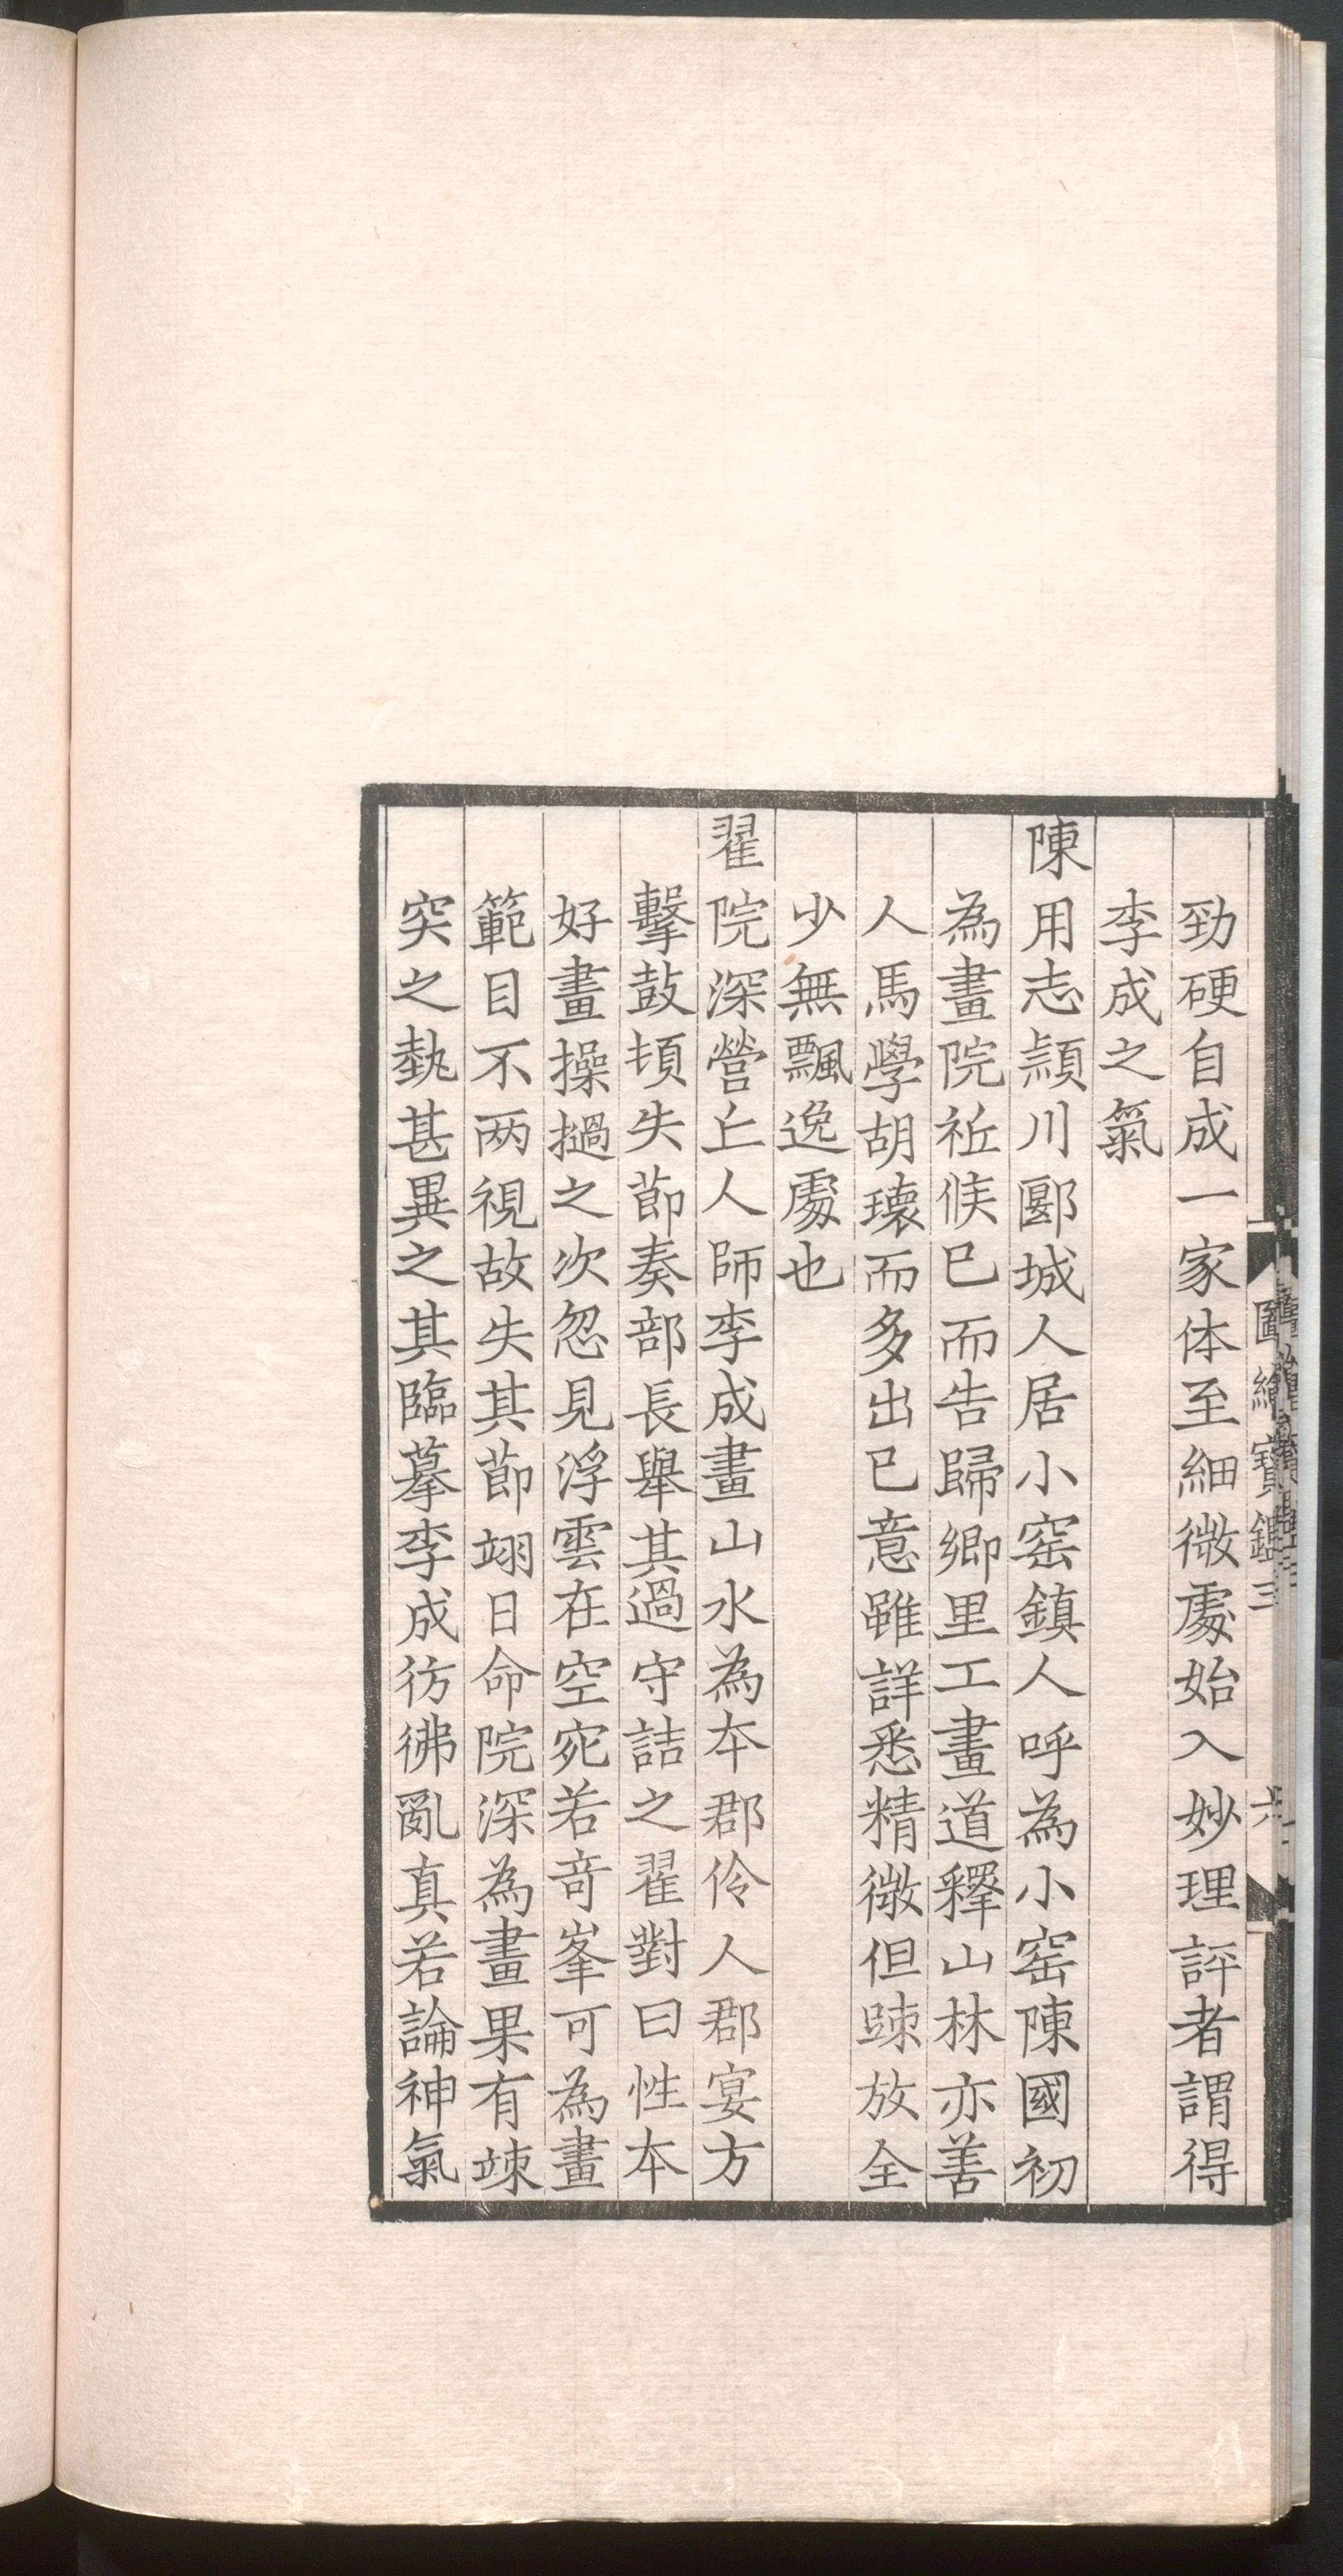 勁硬自成一家体至細微處始入妙理評者謂得
李成之氣
陳用志潁川郾城人居小窑鎮人呼為小窑陳國初
為畫院祗候已而告歸鄉里工畫道釋山林亦善
人馬學胡瓌而多出已意雖詳悉精微但踈放全
少無飄逸處也
翟院深營丘人師李成畫山水為本郡伶人郡宴方
擊鼓頃失莭奏部長舉其過守詰之翟對曰性本
好畫操撾之次忽見浮雲在空宛若竒峯可為畫
範目不两視故失其莭翊日命院深為畫果有竦
突之埶甚異之其臨摹李成彷彿亂真若論神氣
圖繪寶鑑三
六